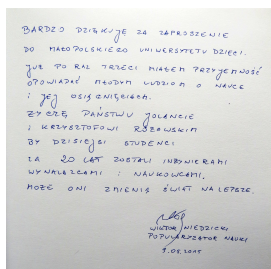 BARDZO DZIĘKUJĘ ZA ZAPROSZENIE
DO MAŁOPOLSKIEGO UNIWERSYTETU DZIECI.
JUŻ PO RAZ TRZECI MIAŁEM PRZYJEMNOŚĆ
OPOWIADAĆ MŁODYM LUDZIOM O NAUCE
I JEJ OSIĄGNIĘCIACH.
ŻYCZĘ PAŃSTWU JOLANCIE
I KRZYSZTOFOWI ROZOWSKIM
BY DZISIEJSI STUDENCI
ZA 20 LAT ZOSTALI INŻYNIERAMI
WYNALAZCAMI I NAUKOWCAMI.
MOŻE ONI ZMIENIĄ ŚWIAT NA LEPSZE.
WIKTOR NIEDZICKI
POPULARYZATOR NAUKI
9.05.2015